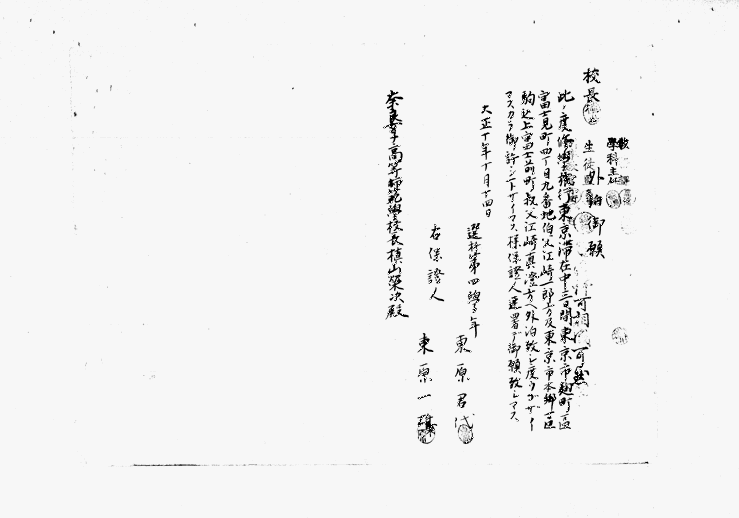 校長
學科主任
生徒
外泊御願
此ノ度修學旅行東京滞在中三日間東京市麹町區
富士見町四丁目九番地伯父江崎一郎方及東京市本郷區
駒込上富士前町叔父江崎真澄方ヘ外泊致シ度うござい
マスカラ御許シ下サイマス様保證人連署デ御願致シマス
大正十年十月十四日
選科第四學年
東原君代
右保證人
東原一
奈良女子高等師範學校長槙山榮次殿